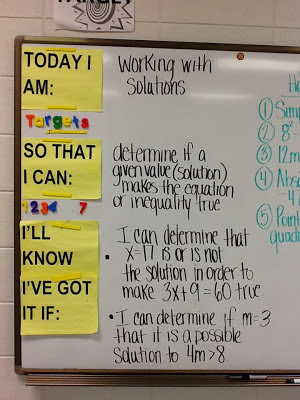 TODAY I
AM:
Working with
Solutions
Targets
SO THAT
I CAN:
determine if a
given value (solution)
makes the equation
or inequality true
1234 7
I'LL
KNOW
I'VE GOT
IT IF:
• I can determine that
x=17 is or is not
the solution in order to
make 3x+9=60 true
• I can determine if m=3
that it is a possible
solution to 4m>8.
① Simp
② 8²
③ 12m
④ Abso
⑤ Point
quad